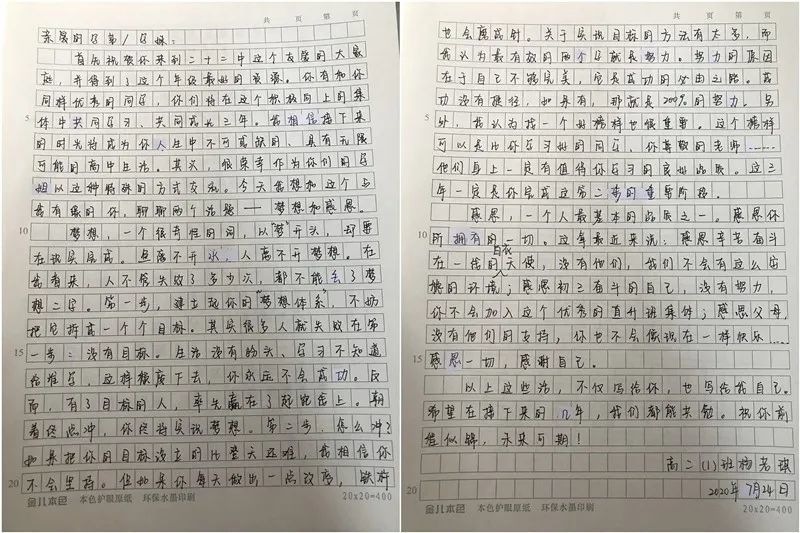 共 页 第 页
亲爱的学弟/学妹：
首先祝贺你来到二十二中这个友爱的大家
庭，并得到了这个年级最好的资源。你有和你
同样优秀的同学，你们将在这个积极向上的集
体中共同学习、共同成长三年。我相信接下来
的时光将成为你人生中不可或缺的、具有无限
可能的高中生活。其次，很荣幸作为你们的学
姐以这种特殊的方式交流。今天我想和这个与
我有缘的你，聊聊两个话题——梦想和感恩。
梦想，一个很奇怪的词，以“梦”开头，却要
在现实完成。鱼离不开水，人离不开梦想。在
我看来，人不管失败了多少次，都不能丢了梦
想二字。第一步，建立起你的“梦想体系”，不妨
把它拆成一个个目标。其实很多人就失败在第
一步：没有目标。生活没有盼头、学习不知道
给谁学，这样颓废下去，你永远不会成功。反
而，有了目标的人，率先赢在了起跑线上。朝
着终点冲，你终将实现梦想。第二步，怎么冲？
如果把你的目标设立的比登天还难，我相信你
不会坚持。但如果你每天做出一点改变，铁杵
5
10
15
20
金儿本色 本色护眼原纸 环保水墨印刷 20×20=400
共 页 第 页
也会磨成针。关于实现目标的方法有太多，而
我认为最有效的两个字就是努力。努力的原因
在于自己不够完美，它是成功的必由之路。成
功没有捷径，如果有，那就是200%的努力。另
外，我认为找一个好榜样也很重要。这个榜样
可以是比你学习好的同学，你尊敬的老师……
他们身上一定有值得你学习的良好品质。这三
年一定是你完成这第二步的重要阶段。
感恩，一个人最基本的品质之一。感恩你
所拥有的一切。这年最近来说：感恩辛苦奋斗
在一线的白衣天使，没有他们，我们不会有这么安
横的环境；感恩初三奋斗的自己，没有努力，
你不会加入这个优秀的直升班集体；感恩父母，
没有他们的支持，你也不会像现在一样快乐……
感恩一切，感谢自己。
以上这些话，不仅写给你，也写给我自己。
希望在接下来的几年，我们都能共勉。祝你前
程似锦，未来可期！
高二(1)班杨若琪
2020年7月24日
5
10
15
20
金儿本色 本色护眼原纸 环保水墨印刷 20×20=400